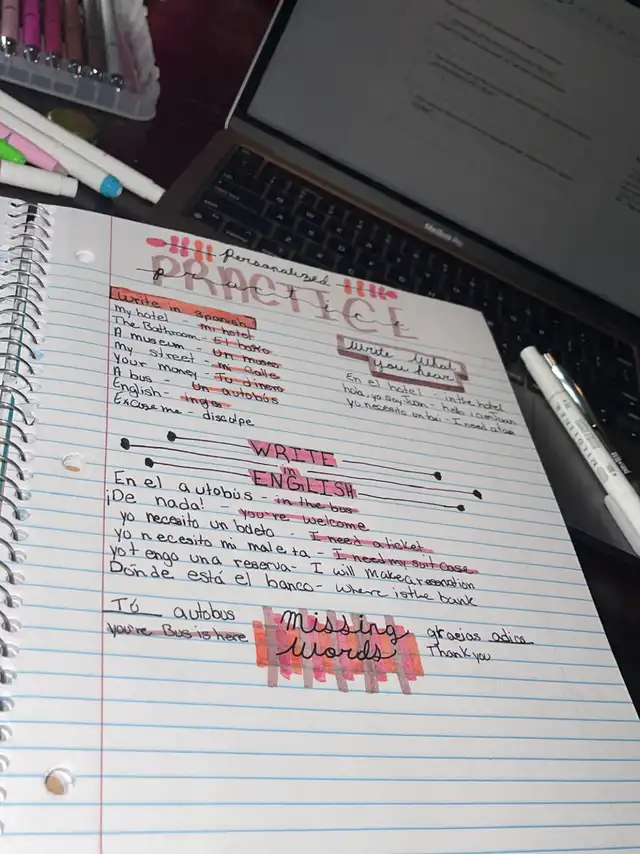 Personalized
PRACTICE
practice
Write in Spanish
My hotel - mi hotel
The Bathroom - El baño
A museum - un museo
my street - mi calle
Your money - Tu dinero
A bus - Un autobús
English - Ingles
Excuse me - discolpe
Write What
you hear
En el hotel - in the hotel
hola, yo soy Juan - hello i am Juan
yo necesito un taxi - I need a taxi
WRITE
in
ENGLISH
En el autobús - in the bus
¡De nada! - you're welcome
yo necesito un boleto - I need a ticket
yo necesito mi maleta - I need my suit case
yo tengo una reserva - I will Make a reservation
Dónde está el banco - where is the bank
TÚ autobus
you're Bus is here
Missing
Words
gracias adios
Thank you
MacBook Pro